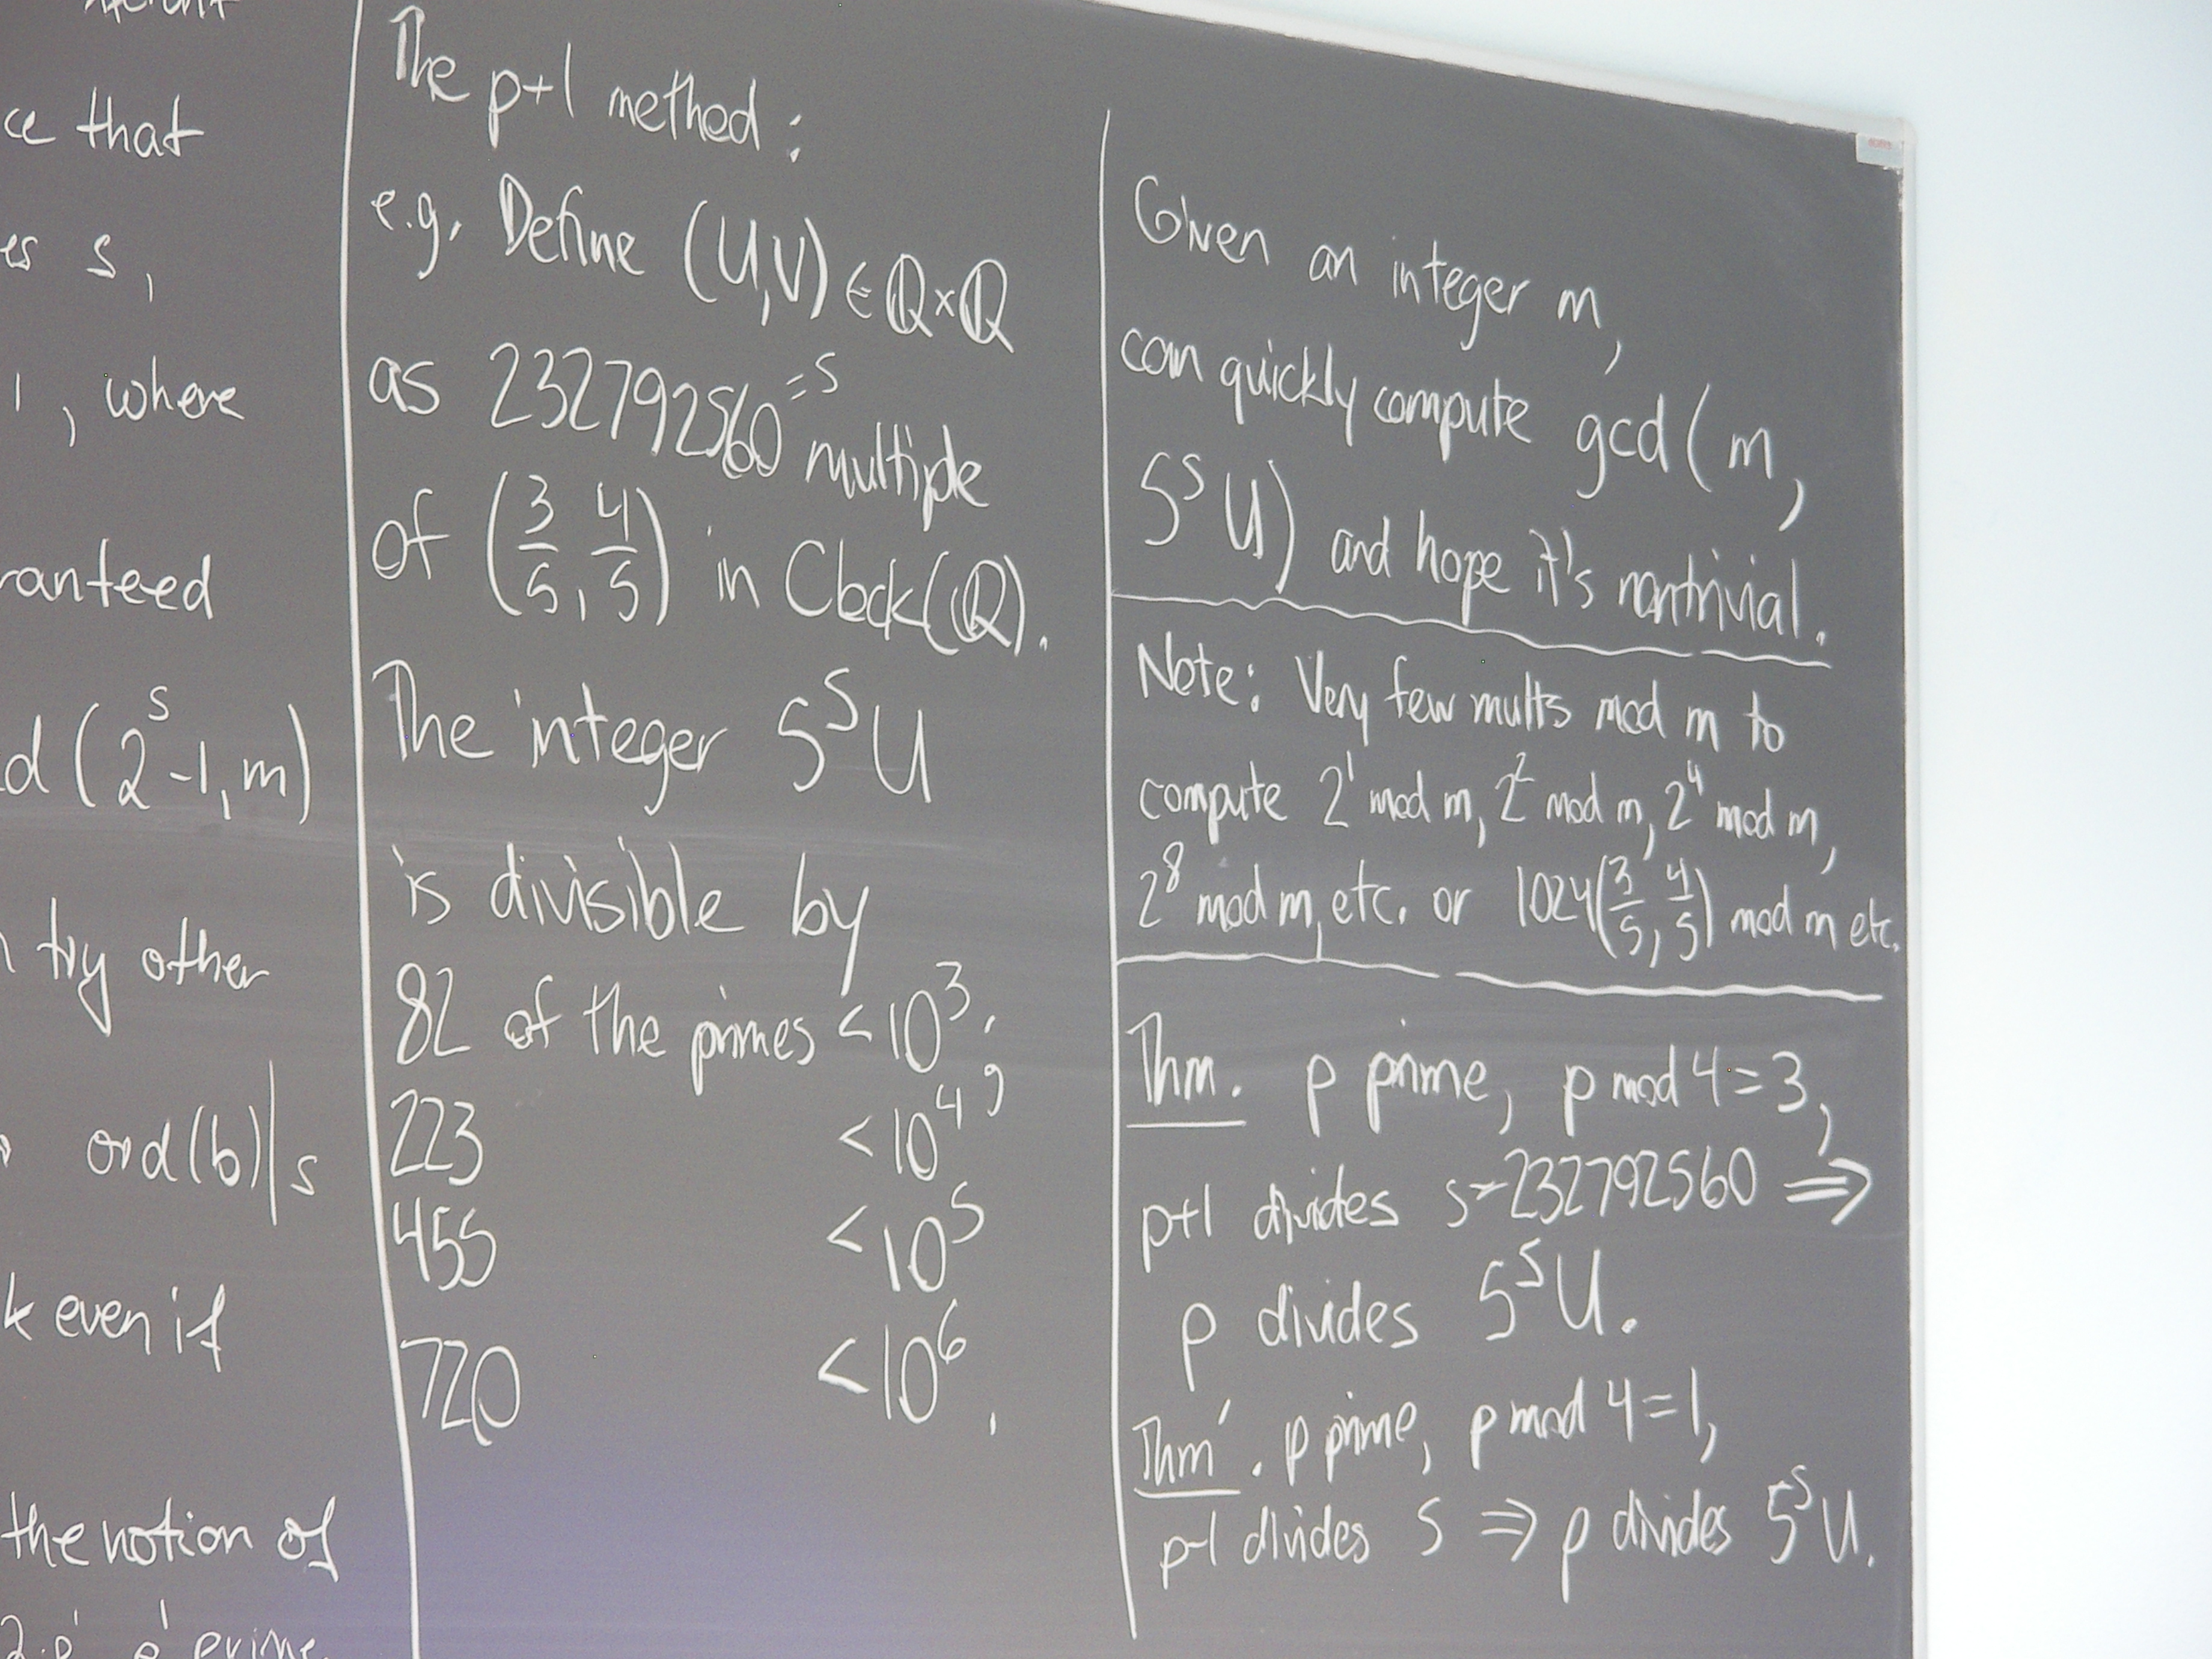 ce that
es s,
1, where
ranteed
d (2^s-1, m)
try other
ord(b)|s
k even if
the notion of
prime.
The p+1 method:
e.g. Define (U,V) ∈ ℚ×ℚ
as 232792560 =s multiple
of (3/5, 4/5) in Clock(ℚ).
The integer 5^S U
is divisible by
82 of the primes < 10^3;
223 < 10^4;
455 < 10^5
720 < 10^6.
Given an integer m,
can quickly compute gcd(m,
5^S U) and hope it's nontrivial.
Note: Very few mults mod m to
compute 2^1 mod m, 2^2 mod m, 2^4 mod m,
2^8 mod m, etc. or 1024(3/5, 4/5) mod m etc.
Thm. p prime, p mod 4=3,
p+1 divides s=232792560 ⇒
p divides 5^S U.
Thm'. p prime, p mod 4=1,
p-1 divides s ⇒ p divides 5^S U.